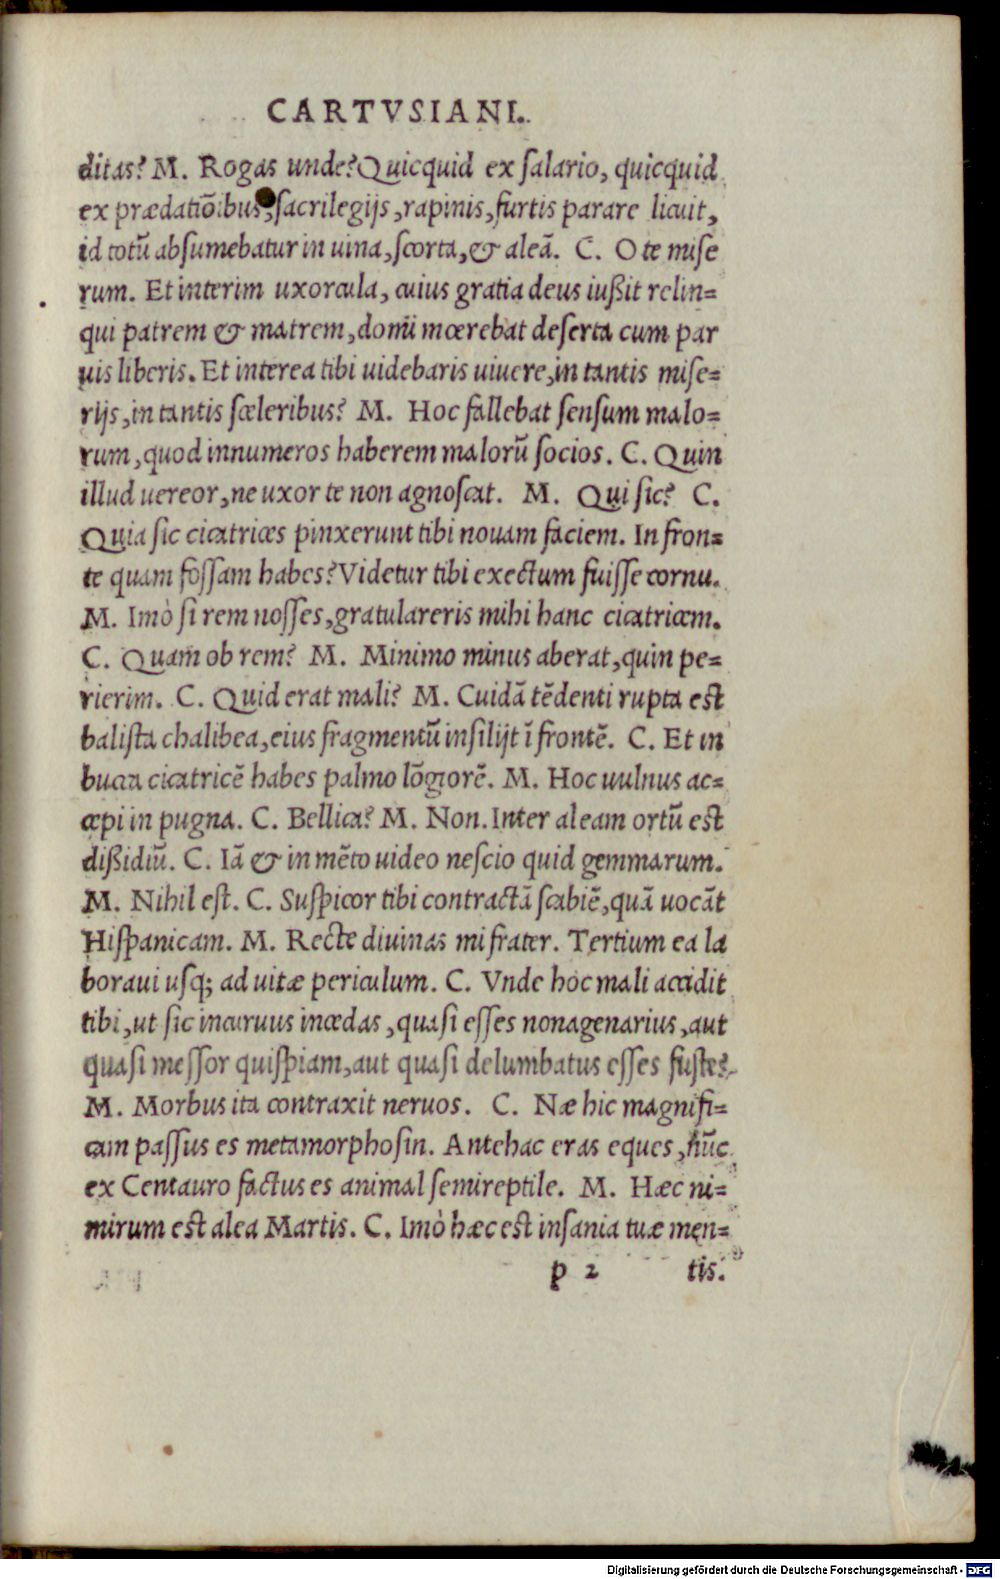 CARTVSIANI.
ditas? M. Rogas unde? Quicquid ex salario, quicquid
ex prædatiōibus, sacrilegijs, rapinis, furtis parare licuit,
id totū absumebatur in uina, scorta, & aleā. C. O te mise
rum. Et interim uxorcula, cuius gratia deus iußit relin=
qui patrem & matrem, domi mœrebat deserta cum par
uis liberis. Et interea tibi uidebaris uiuere, in tantis mise=
rijs, in tantis sceleribus? M. Hoc fallebat sensum malo=
rum, quod innumeros haberem malorū socios. C. Quin
illud uereor, ne uxor te non agnoscat. M. Qui sic? C.
Quia sic cicatrices pinxerunt tibi nouam faciem. In fron=
te quam fossam habes? Videtur tibi exectum fuisse cornu.
M. Imò si rem nosses, gratulareris mihi hanc cicatricem.
C. Quam ob rem? M. Minimo minus aberat, quin pe=
rierim. C. Quid erat mali? M. Cuidā tēdenti rupta est
balista chalibea, eius fragmentū insilijt ī frontē. C. Et in
bucca cicatricē habes palmo lōgiorē. M. Hoc uulnus ac=
cepi in pugna. C. Bellica? M. Non. Inter aleam ortū est
dißidiū. C. Iā & in mēto uideo nescio quid gemmarum.
M. Nihil est. C. Suspicor tibi contractā scabiē, quā uocāt
Hispanicam. M. Recte diuinas mi frater. Tertium ea la
boraui usq; ad uitæ periculum. C. Vnde hoc mali accidit
tibi, ut sic incuruus incedas, quasi esses nonagenarius, aut
quasi messor quispiam, aut quasi delumbatus esses fuste?
M. Morbus ita contraxit neruos. C. Næ hic magnifi=
cam passus es metamorphosin. Antehac eras eques, nūc
ex Centauro factus es animal semireptile. M. Hæc ni=
mirum est alea Martis. C. Imò hæc est insania tuæ men=
p 2 tis.
Digitalisierung gefördert durch die Deutsche Forschungsgemeinschaft - DFG